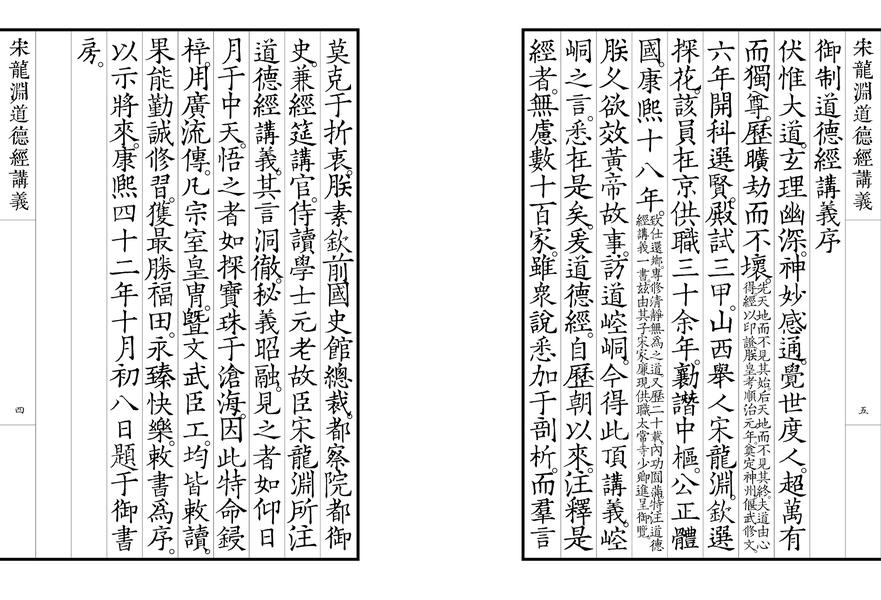 宋龍淵道德經講義
五
御制道德經講義序
伏惟大道。玄理幽深。神妙感通。覺世度人。超萬有
而獨尊。歷曠劫而不壞。先天地而不見其始后天地而不見其終。夫道由心
得經以印證朕皇考順治元年。奠定神州偃武修文。
六年開科選賢。殿試三甲。山西舉人宋龍淵。欽選
探花。該員在京供職三十余年。勷譛中樞。公正體
國。康熙十八年。致仕還鄉。專修清靜無為之道。又歷二十載。內功圓滿。恃注道德
經講義一書。茲由其子宋家廉現供職太常寺少卿進呈御覽。
朕久欲效黃帝故事。訪道崆峒。今得此頂講義。崆
峒之言。悉在是矣。爰道德經。自歷朝以來。注釋是
經者。無慮數十百家。雖衆說悉加于剖析。而羣言
莫克于折衷。朕素欽前國史館總裁。都察院都御
史。兼經筵講官。侍讀學士元老故臣宋龍淵所注
道德經講義。其言洞徹。秘義昭融。見之者如仰日
月于中天。悟之者如探寶珠于滄海。因此特命鋟
梓。用廣流傳。凡宗室皇冑。曁文武臣工。均皆敕讀。
果能勤誠修習。獲最勝福田。永臻快樂。敕書爲序。
以示將來。康熙四十二年十月初八日題于御書
房。
宋龍淵道德經講義
四